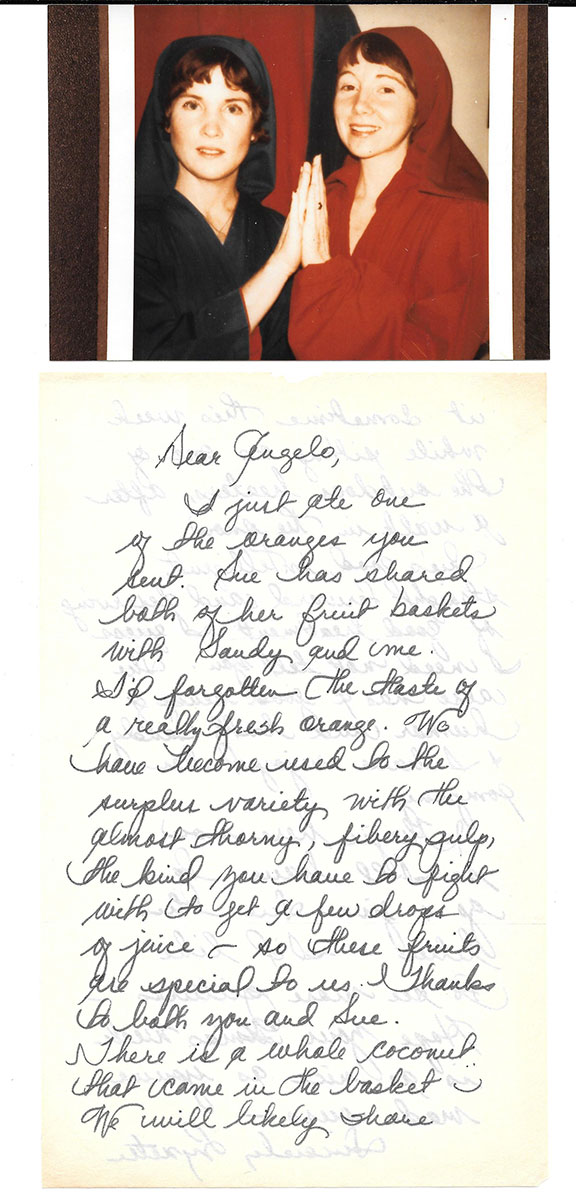 Dear Angelo,
I just ate one
of the oranges you
sent. Sue has shared
both of her fruit baskets
with Sandy and me.
I'd forgotten the taste of
a really fresh orange. We
have become used to the
surplus variety with the
almost thorny, fibery pulp,
the kind you have to fight
with to get a few drops
of juice – so these fruits
are special to us. Thanks
to both you and Sue.
There is a whole coconut
that came in the basket
We will likely share